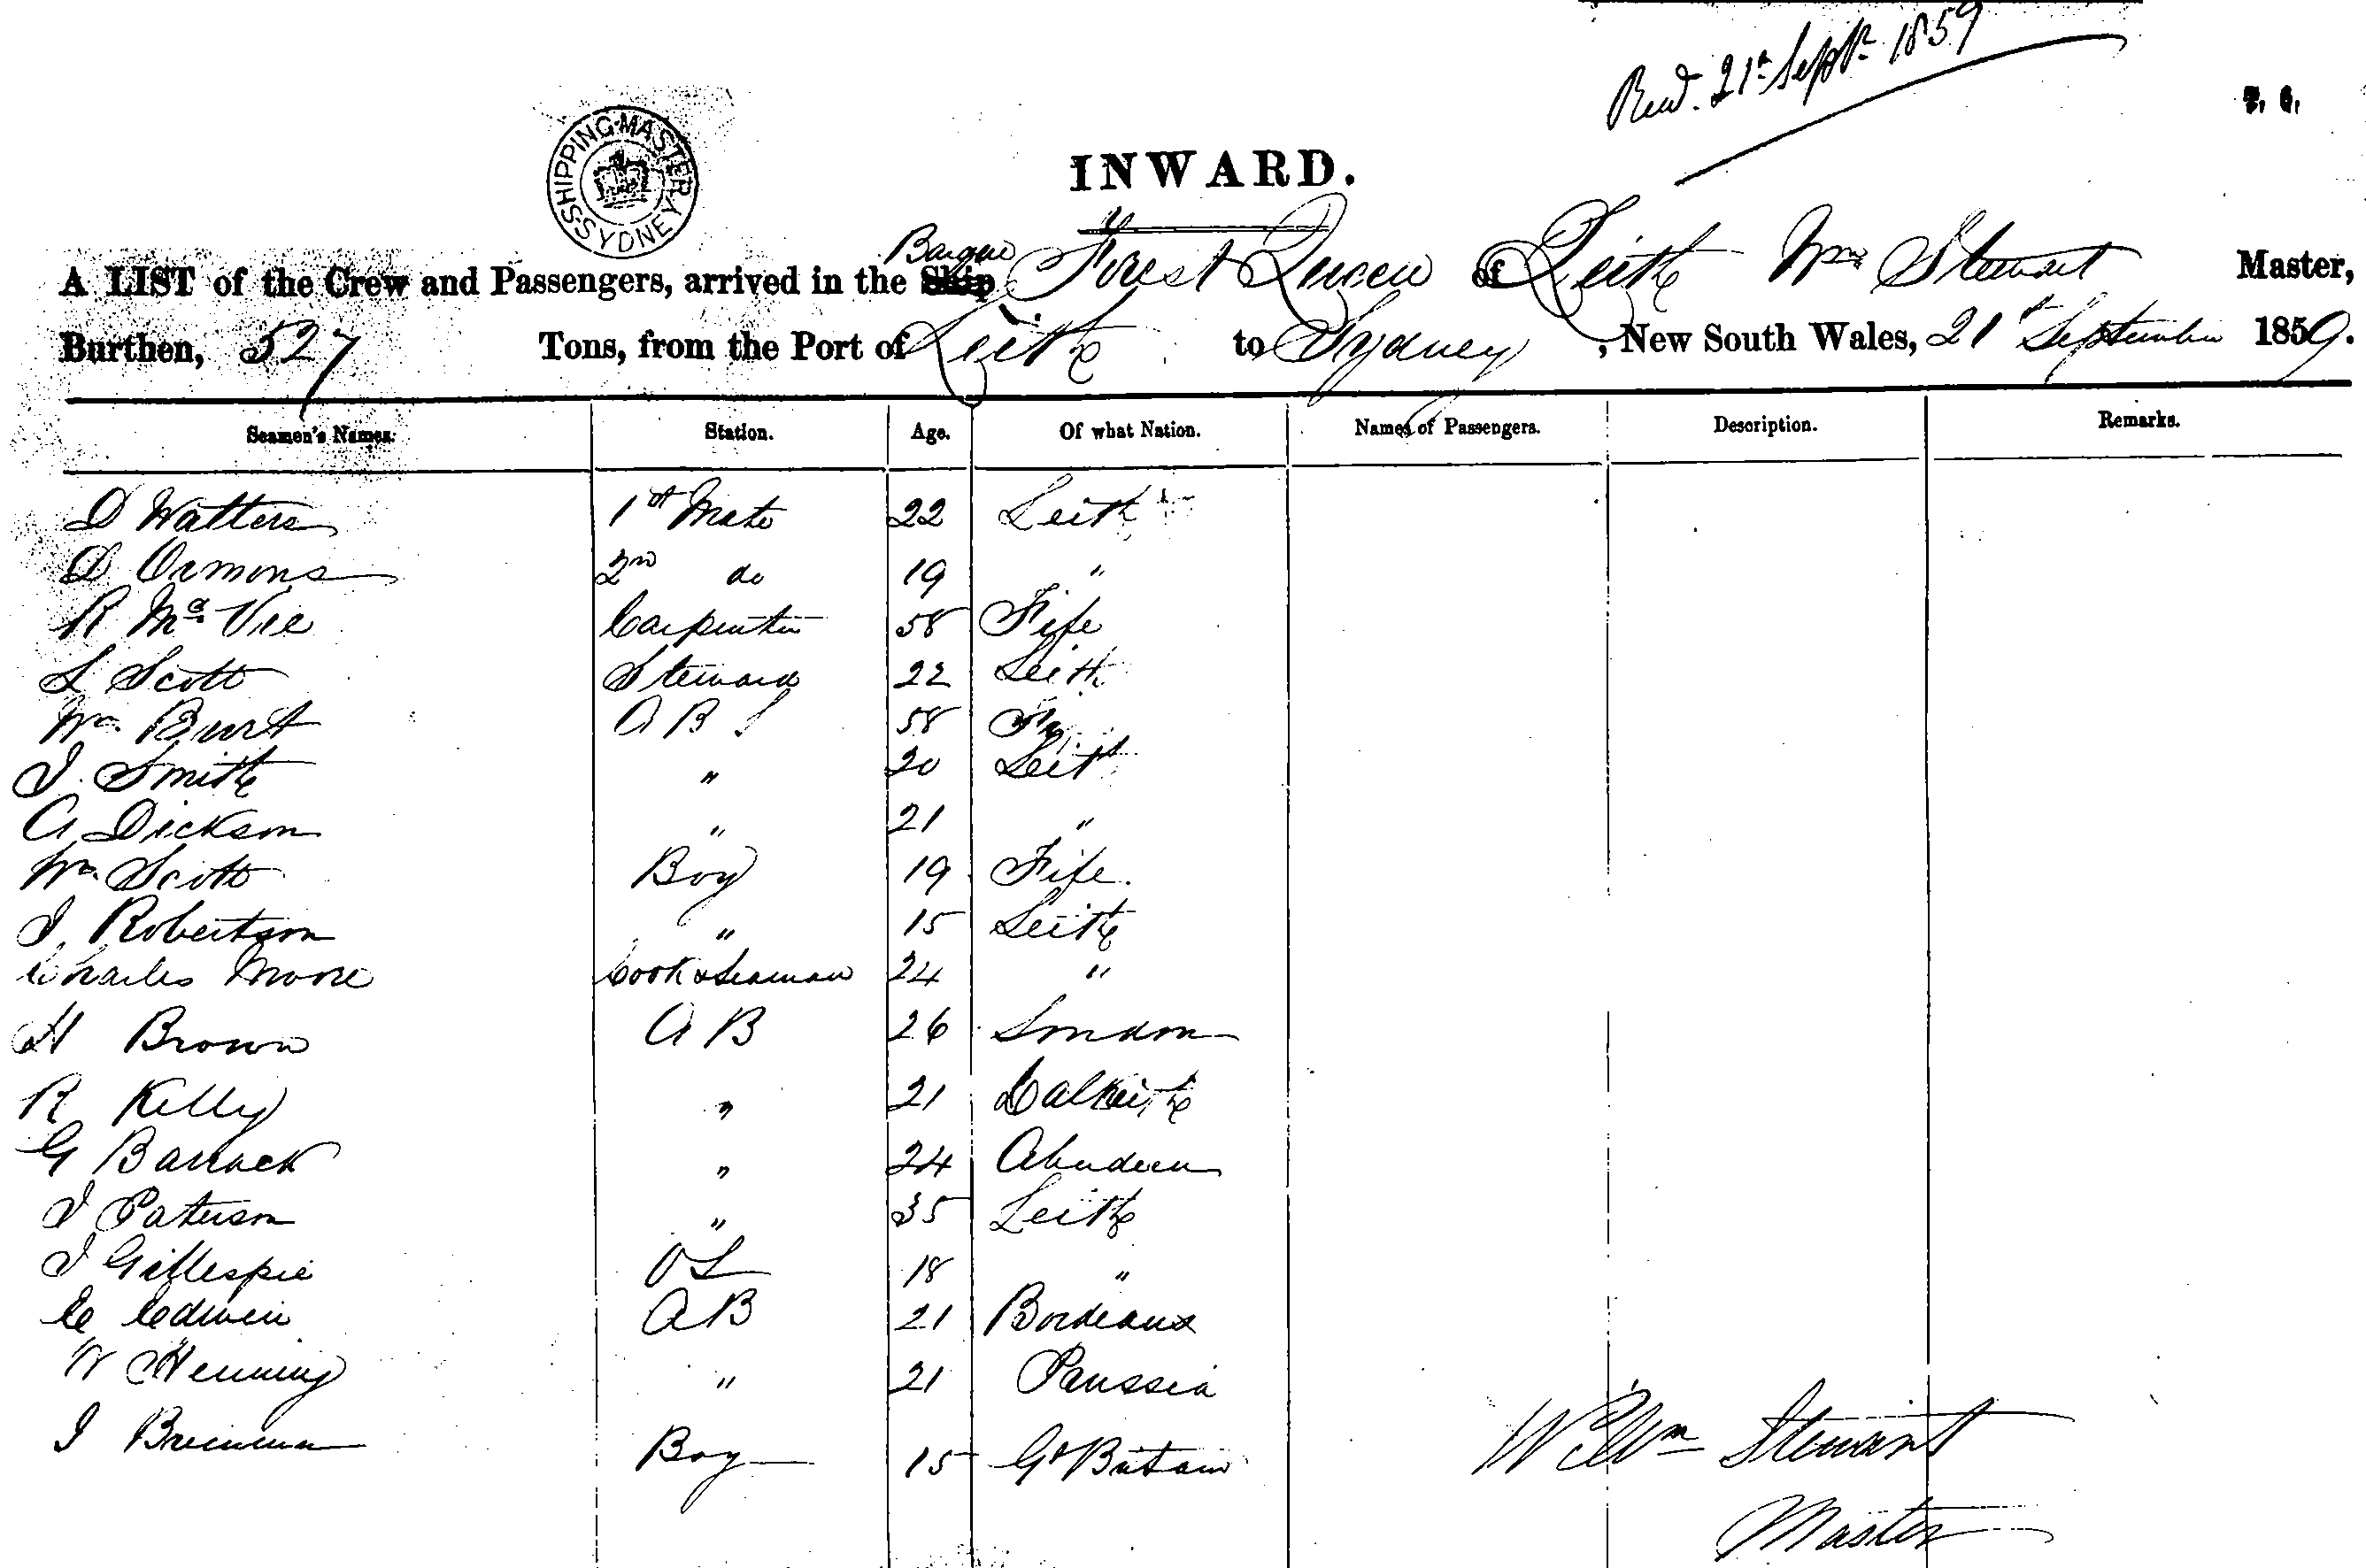 Recd. 21st Septr. 1859
SHIPPING MASTER SYDNEY
INWARD.
Barque
A LIST of the Crew and Passengers, arrived in the Ship Forest Queen of Leith Wm Stewart Master,
Burthen, 527 Tons, from the Port of Leith to Sydney, New South Wales, 21st September 1859.
Seamen's Names. Station. Age. Of what Nation. Names of Passengers. Description. Remarks.
D Watters 1st Mate 22 Leith
D Ormons 2nd do 19 "
R Mc Vie Carpenter 58 Fife
L Scott Steward 22 Leith
Wm Burt A B S 58
J. Smith " 20 Leith
A Dickson " 21 "
Wm Scott Boy 19 Fife.
J. Robertson " 15 Leith
Charles Moore Cook & Seaman 24 "
H Brown A B 26 London
R Kelly " 21 Dalkeith
G Barrack " 24 Aberdeen
J Paterson " 35 Leith
J Gillespie O S 18 "
E Edwin A B 21 Bordeaux
W Henning " 21 Prussia
J Boy 15 Gt Britain
Wm Stewart
Master